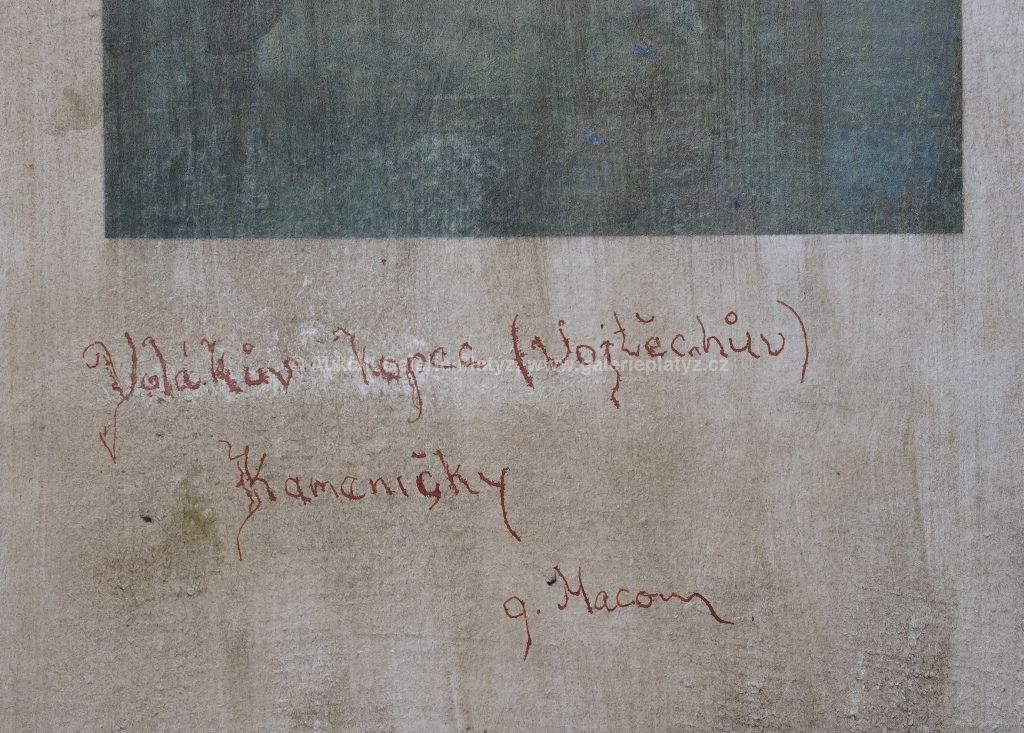 Volákův kopec (Vojtěchův)
Kameničky
g. Macoun
www.galerieplatyz.cz